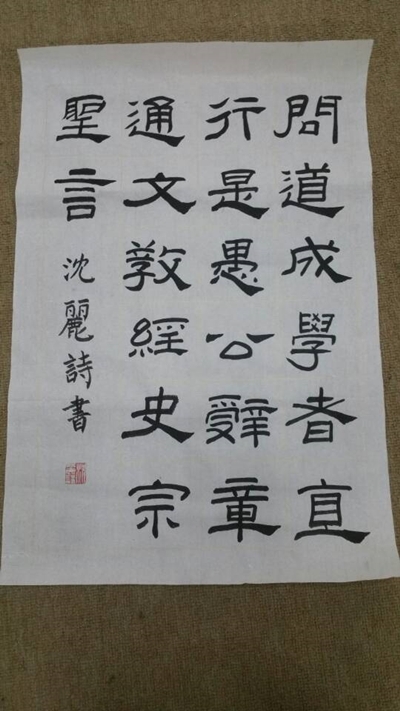 問道成學者直
行是愚公辭章
通文教經史宗
聖言
沈麗詩書